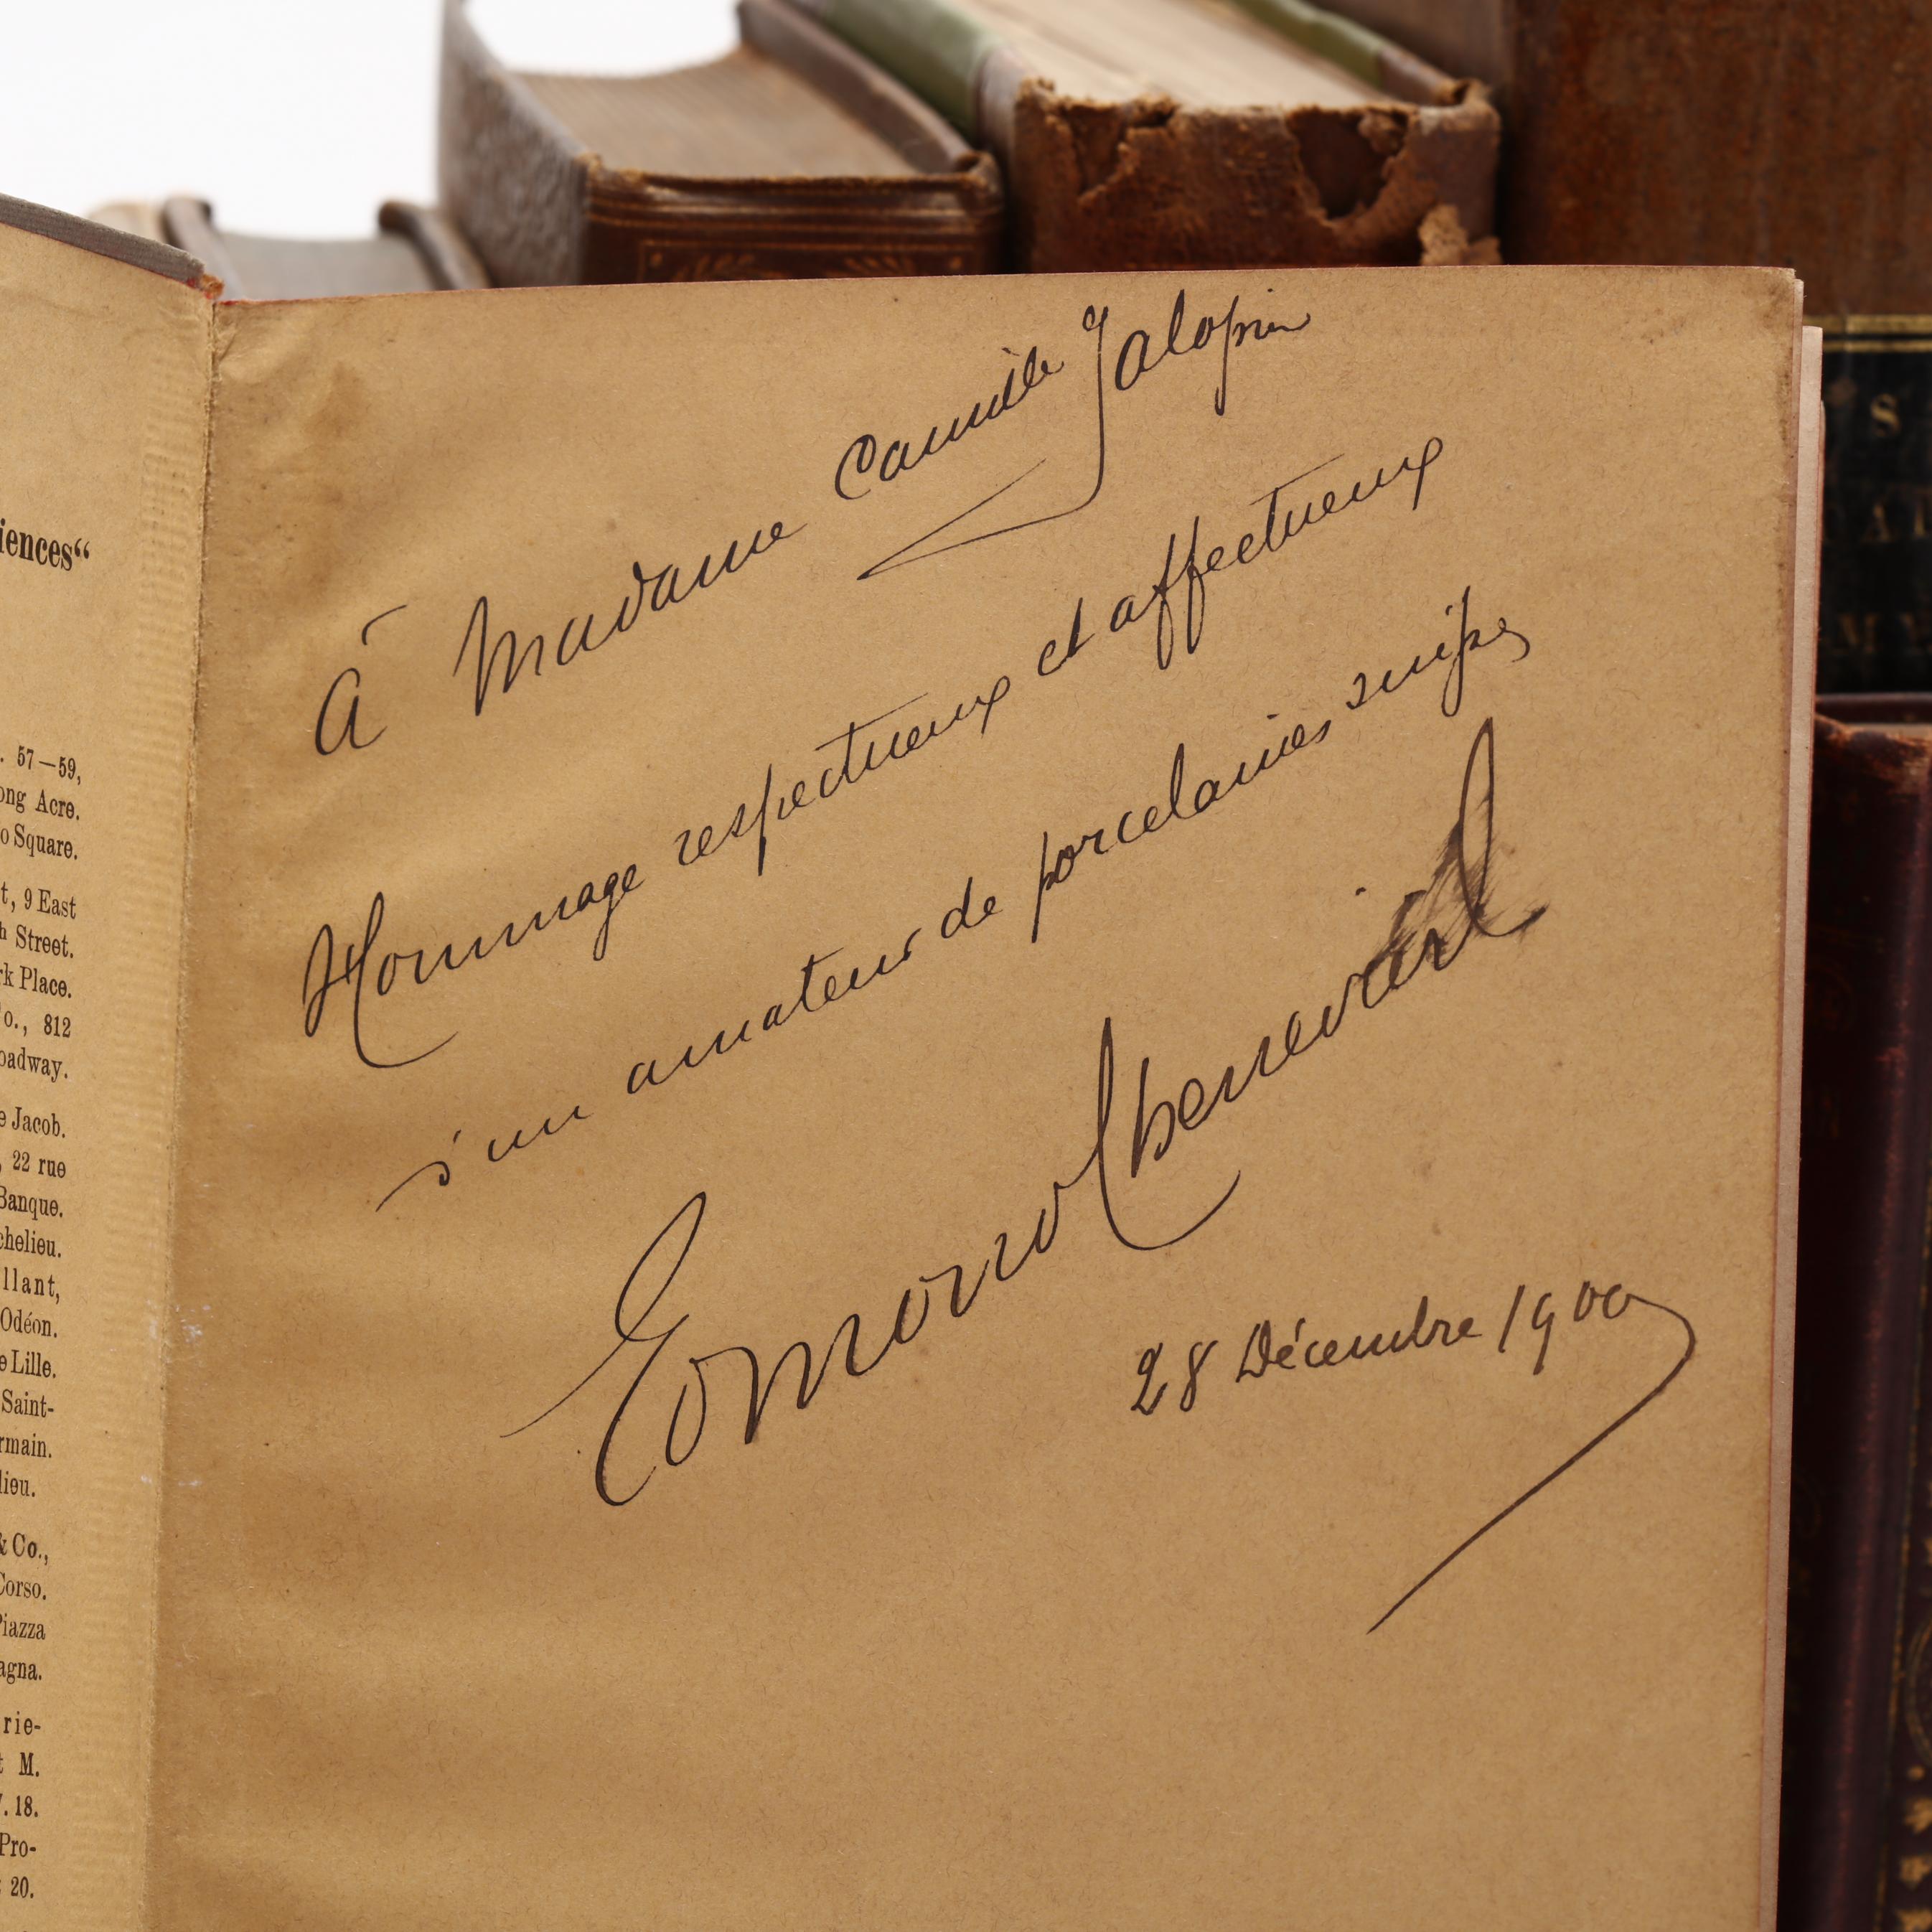 iences“
. 57—59,
ong Acre.
o Square.
t, 9 East
h Street.
rk Place.
o., 812
oadway.
e Jacob.
, 22 rue
Banque.
chelieu.
llant,
Odéon.
e Lille.
Saint-
rmain.
lieu.
& Co.,
Corso.
Piazza
agna.
rie-
t M.
7. 18.
Pro-
20.
À Madame Camille Galopin
Hommage respectueux et affectueux
d'un amateur de porcelaines suisses
Edmond Chenevard
28 Décembre 1900